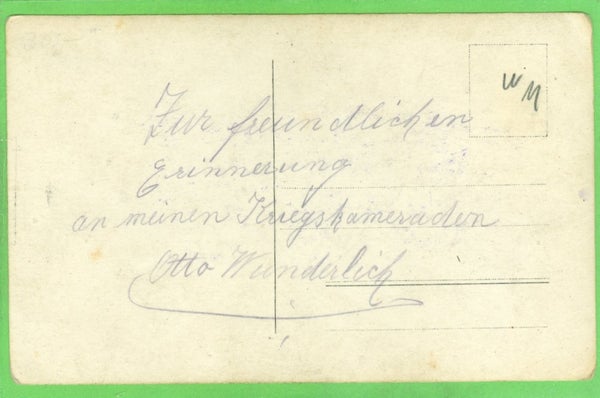 Zur freundlichen
Erinnerung
an meinen Kriegskameraden
Otto Wunderlich